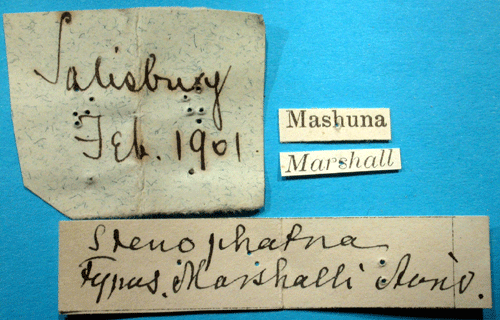 Salisbury
Feb. 1901.
Mashuna
Marshall
Stenophatna
Typus. Marshalli Auriv.